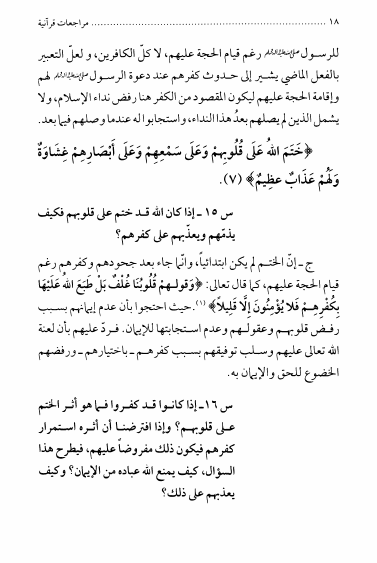 ١٨ ........................................ مراجعات قرآنية
للرسول ﷺ رغم قيام الحجة عليهم، لا كلّ الكافرين، و لعلّ التعبير
بالفعل الماضي يشير إلى حدوث كفرهم عند دعوة الرسول ﷺ لهم
وإقامة الحجة عليهم ليكون المقصود من الكفر هنا رفض نداء الإسلام، ولا
يشمل الذين لم يصلهم بعدُ هذا النداء، واستجابوا له عندما وصلهم فيما بعد.
﴿خَتَمَ اللهُ عَلَى قُلُوبِهِمْ وَعَلَى سَمْعِهِمْ وَعَلَى أَبْصَارِهِمْ غِشَاوَةٌ
وَلَهُمْ عَذَابٌ عظِيمٌ﴾ (٧).
س ١٥ ـ إذا كان الله قد ختم على قلوبهم فكيف
يذمّهم ويعذّبهم على كفرهم؟
ج ـ إنّ الختـم لم يكن ابتدائياً، وانّما جاء بعد جحودهم وكفرهم رغم
قيام الحجة عليهم، كما قال تعالى: ﴿وَقَولـهِمْ قُلُوبُنَا غُلْفٌ بَلْ طَبَعَ اللهُ عَلَيْهَا
بِكُفْرِهِـمْ فَلا يُؤْمِنُونَ إِلَّا قَلِيلاً﴾(١). حيث احتجوا بأن عدم إيمانهم بسبب
رفـض قلوبهـم وعقولـهم وعدم استجابتها للإيمان. فـردّ عليهم بأن لعنة
الله تعالى عليهم وسلب توفيقهم بسبب كفرهـم ـ باختيارهم ـ ورفضهم
الخضوع للحق والإيمان به.
س ١٦ـ إذا كانـوا قـد كفـروا فـما هو أثـر الختم
على قلوبهـم؟ وإذا افترضنـا أن أثـره استمـرار
كفرهم فيكون ذلك مفروضاً عليهم، فيطرح هذا
السؤال، كيف يمنع الله عباده من الإيمان؟ وكيف
يعذبهم على ذلك؟